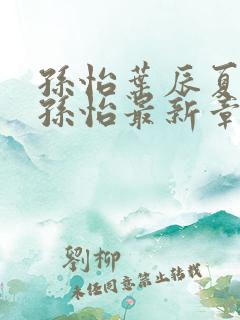 孫怡葉辰夏
孫怡最新章
劉柳
未经同意禁止转载